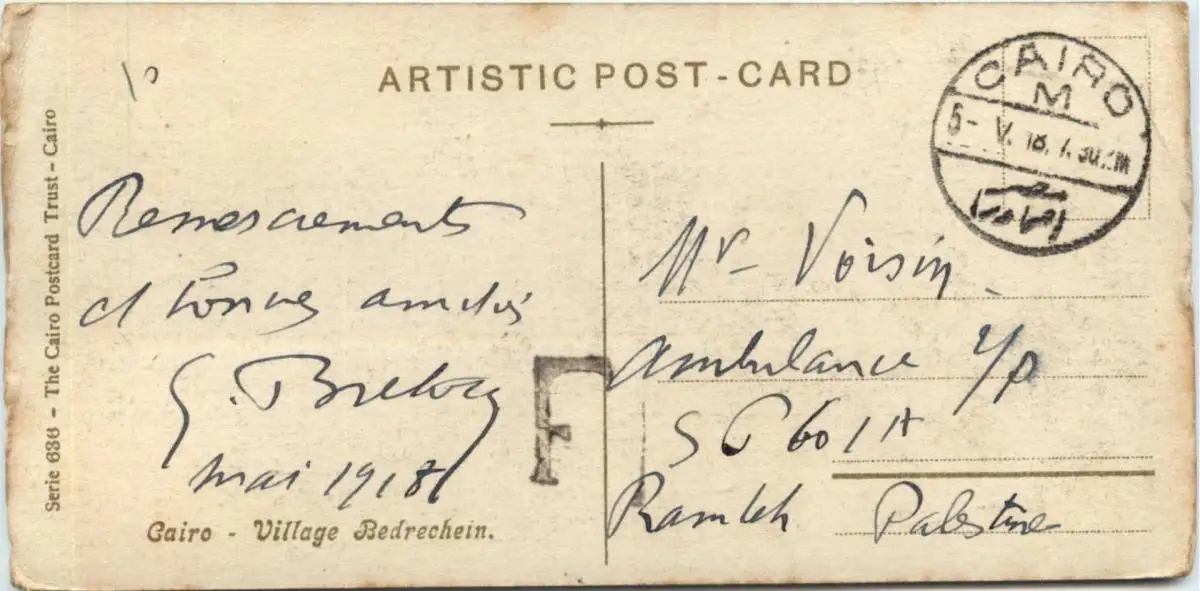 ARTISTIC POST-CARD
CAIRO
M
5-V.18.7.30
Serie 636 - The Cairo Postcard Trust - Cairo
Remerciements
et bonnes amitiés
mai 1918
Cairo - Village Bedrechein.
F
Mr Voisin
Ambulance
Ramleh Palestine